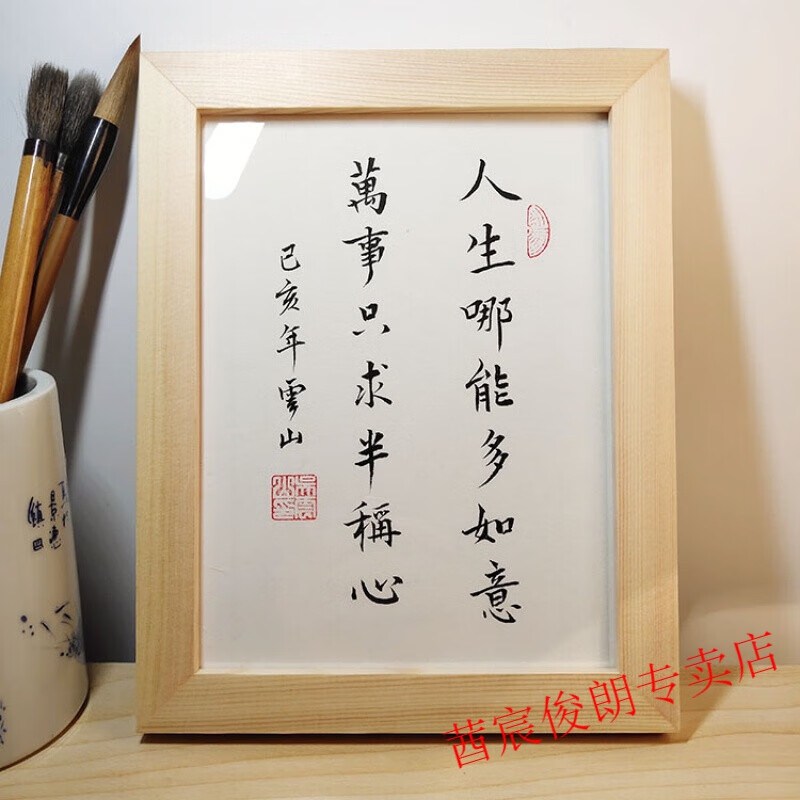 人生哪能多如意
萬事只求半稱心
己亥年雲山
茜宸俊朗专卖店